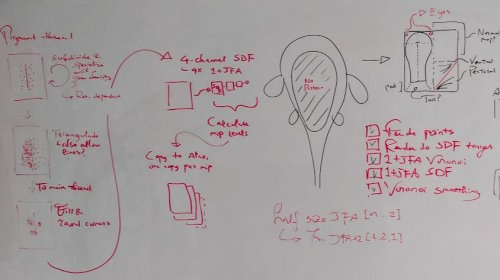 Pigment thread
Subdivide &
Specialize
with grain density
Triangulate
&also allow
lines?
To main thread
Fill &
round corners
4-channel SDF
4x 1+JFA
Calculate
mip levels
Copy to Atlas,
one copy per mip
No
Eyes
Normal
map?
Ventral
Pectoral
Tail?
points
Render to SDF target
1+JFA Voronoi
1+JFA SDF
Voronoi smoothing
Half size JFA [n-2]
JFA+2 [3,2,2]